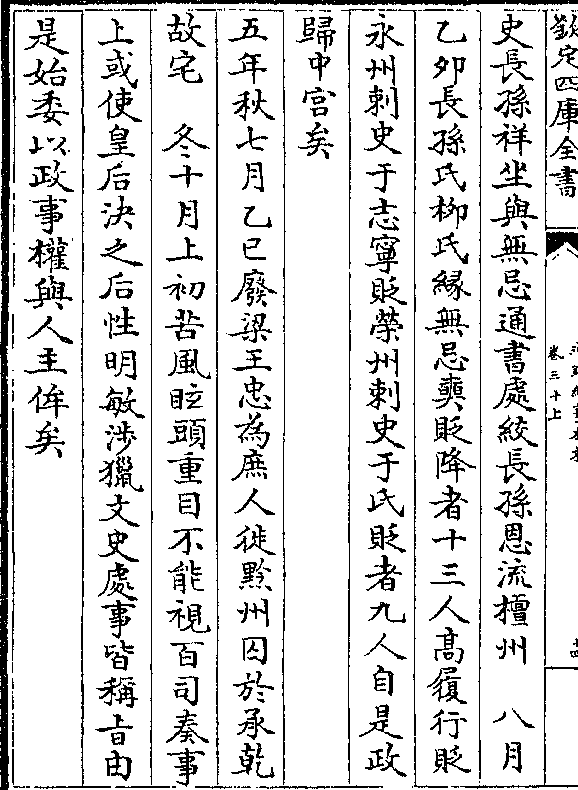 欽定四庫全書
卷三十上
史長孫祥坐與無忌通書處絞長孫恩流檀州　八月
乙卯長孫氏栁氏緣無忌奭貶降者十三人髙履行貶
永州刺史于志寧貶榮州刺史于氏貶者九人自是政
歸中宫矣
五年秋七月乙巳廢梁王忠為庶人徙黔州囚於承乾
故宅　冬十月上初苦風眩頭重目不能視百司奏事
上或使皇后決之后性明敏涉獵文史處事皆稱旨由
是始委以政事權與人主侔矣